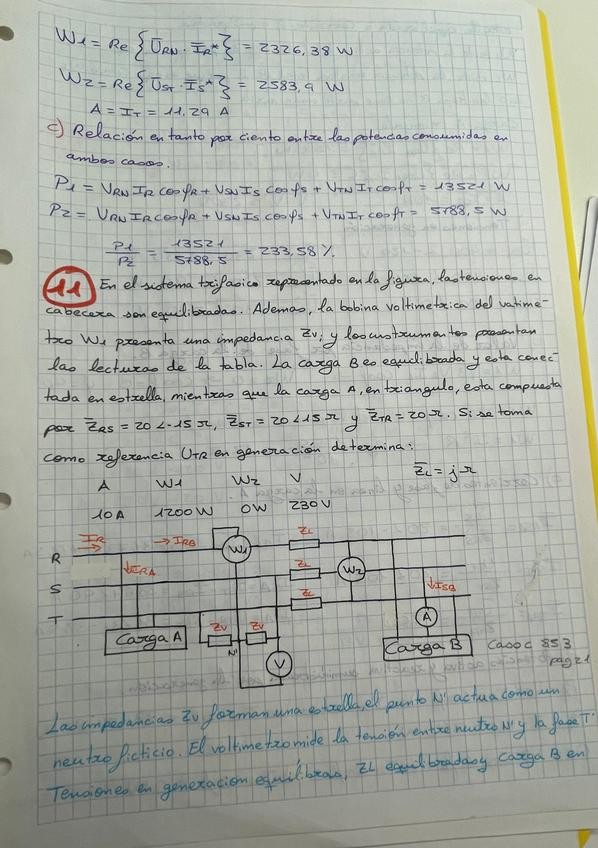 W1 = Re {U̅RN · I̅R*} = 2326,38 W
W2 = Re {U̅ST · I̅S*} = 2583,9 W
A = IT = 11,29 A
c) Relación en tanto por ciento entre las potencias consumidas en
ambos casos.
P1 = VRN IR cosφR + VSN IS cosφS + VTN IT cosφT = 13521 W
P2 = VRN IR cosφR + VSN IS cosφS + VTN IT cosφT = 5788,5 W
P1/P2 = 13521/5788,5 = 233,58 %.
11 En el sistema trifasico representado en la figura, las tensiones en
cabecera son equilibradas. Ademas, la bobina voltimetrica del vatime-
tro W1 presenta una impedancia Z̅v, y los instrumentos presentan
las lecturas de la tabla. La carga B es equilibrada y esta conec-
tada en estrella, mientras que la carga A, en triangulo, esta compuesta
por Z̅RS = 20∠-15 Ω, Z̅ST = 20∠15 Ω y Z̅TR = 20 Ω. Si se toma
como referencia UTR en generación determina:
A W1 W2 V Z̅L = j Ω
10 A 1200 W 0W 230V
IR → IRB ZL
R W1
↓IRA ZL
S W2
ZL ↓ISB
T
Carga A Zv Zv A
N' V Carga B Caso C 853
pag 21
Las impedancias Zv forman una estrella, el punto N' actua como un
neutro ficticio. El voltimetro mide la tensión entre neutro N' y la fase T
Tensiones en generacion equilibrias, ZL equilibradas y carga B en